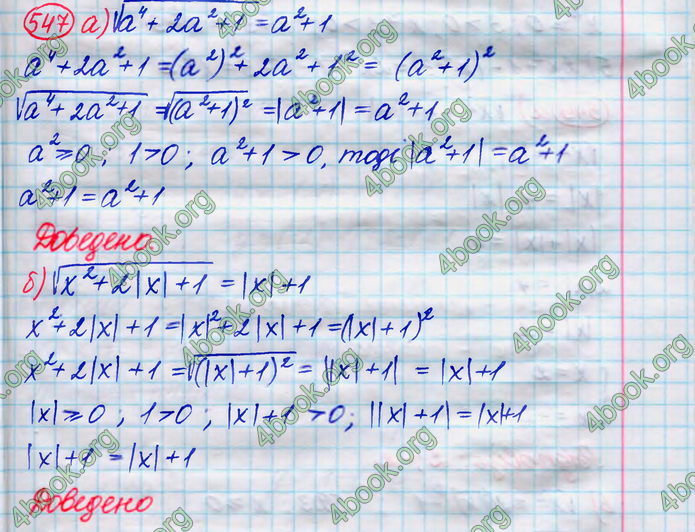 547 а) √a⁴+2a²+1 = a²+1
a⁴+2a²+1 = (a²)²+2a²+1² = (a²+1)²
√a⁴+2a²+1 = √(a²+1)² = |a²+1| = a²+1
a² ≥ 0; 1>0; a²+1>0, тоді |a²+1| = a²+1
a²+1 = a²+1
Доведено.
б) √x²+2|x|+1 = |x|+1
x²+2|x|+1 = |x|²+2|x|+1 = (|x|+1)²
x²+2|x|+1 = √(|x|+1)² = ||x|+1| = |x|+1
|x| ≥ 0; 1>0; |x|+1>0; ||x|+1| = |x|+1
|x|+1 = |x|+1
Доведено
4book.org